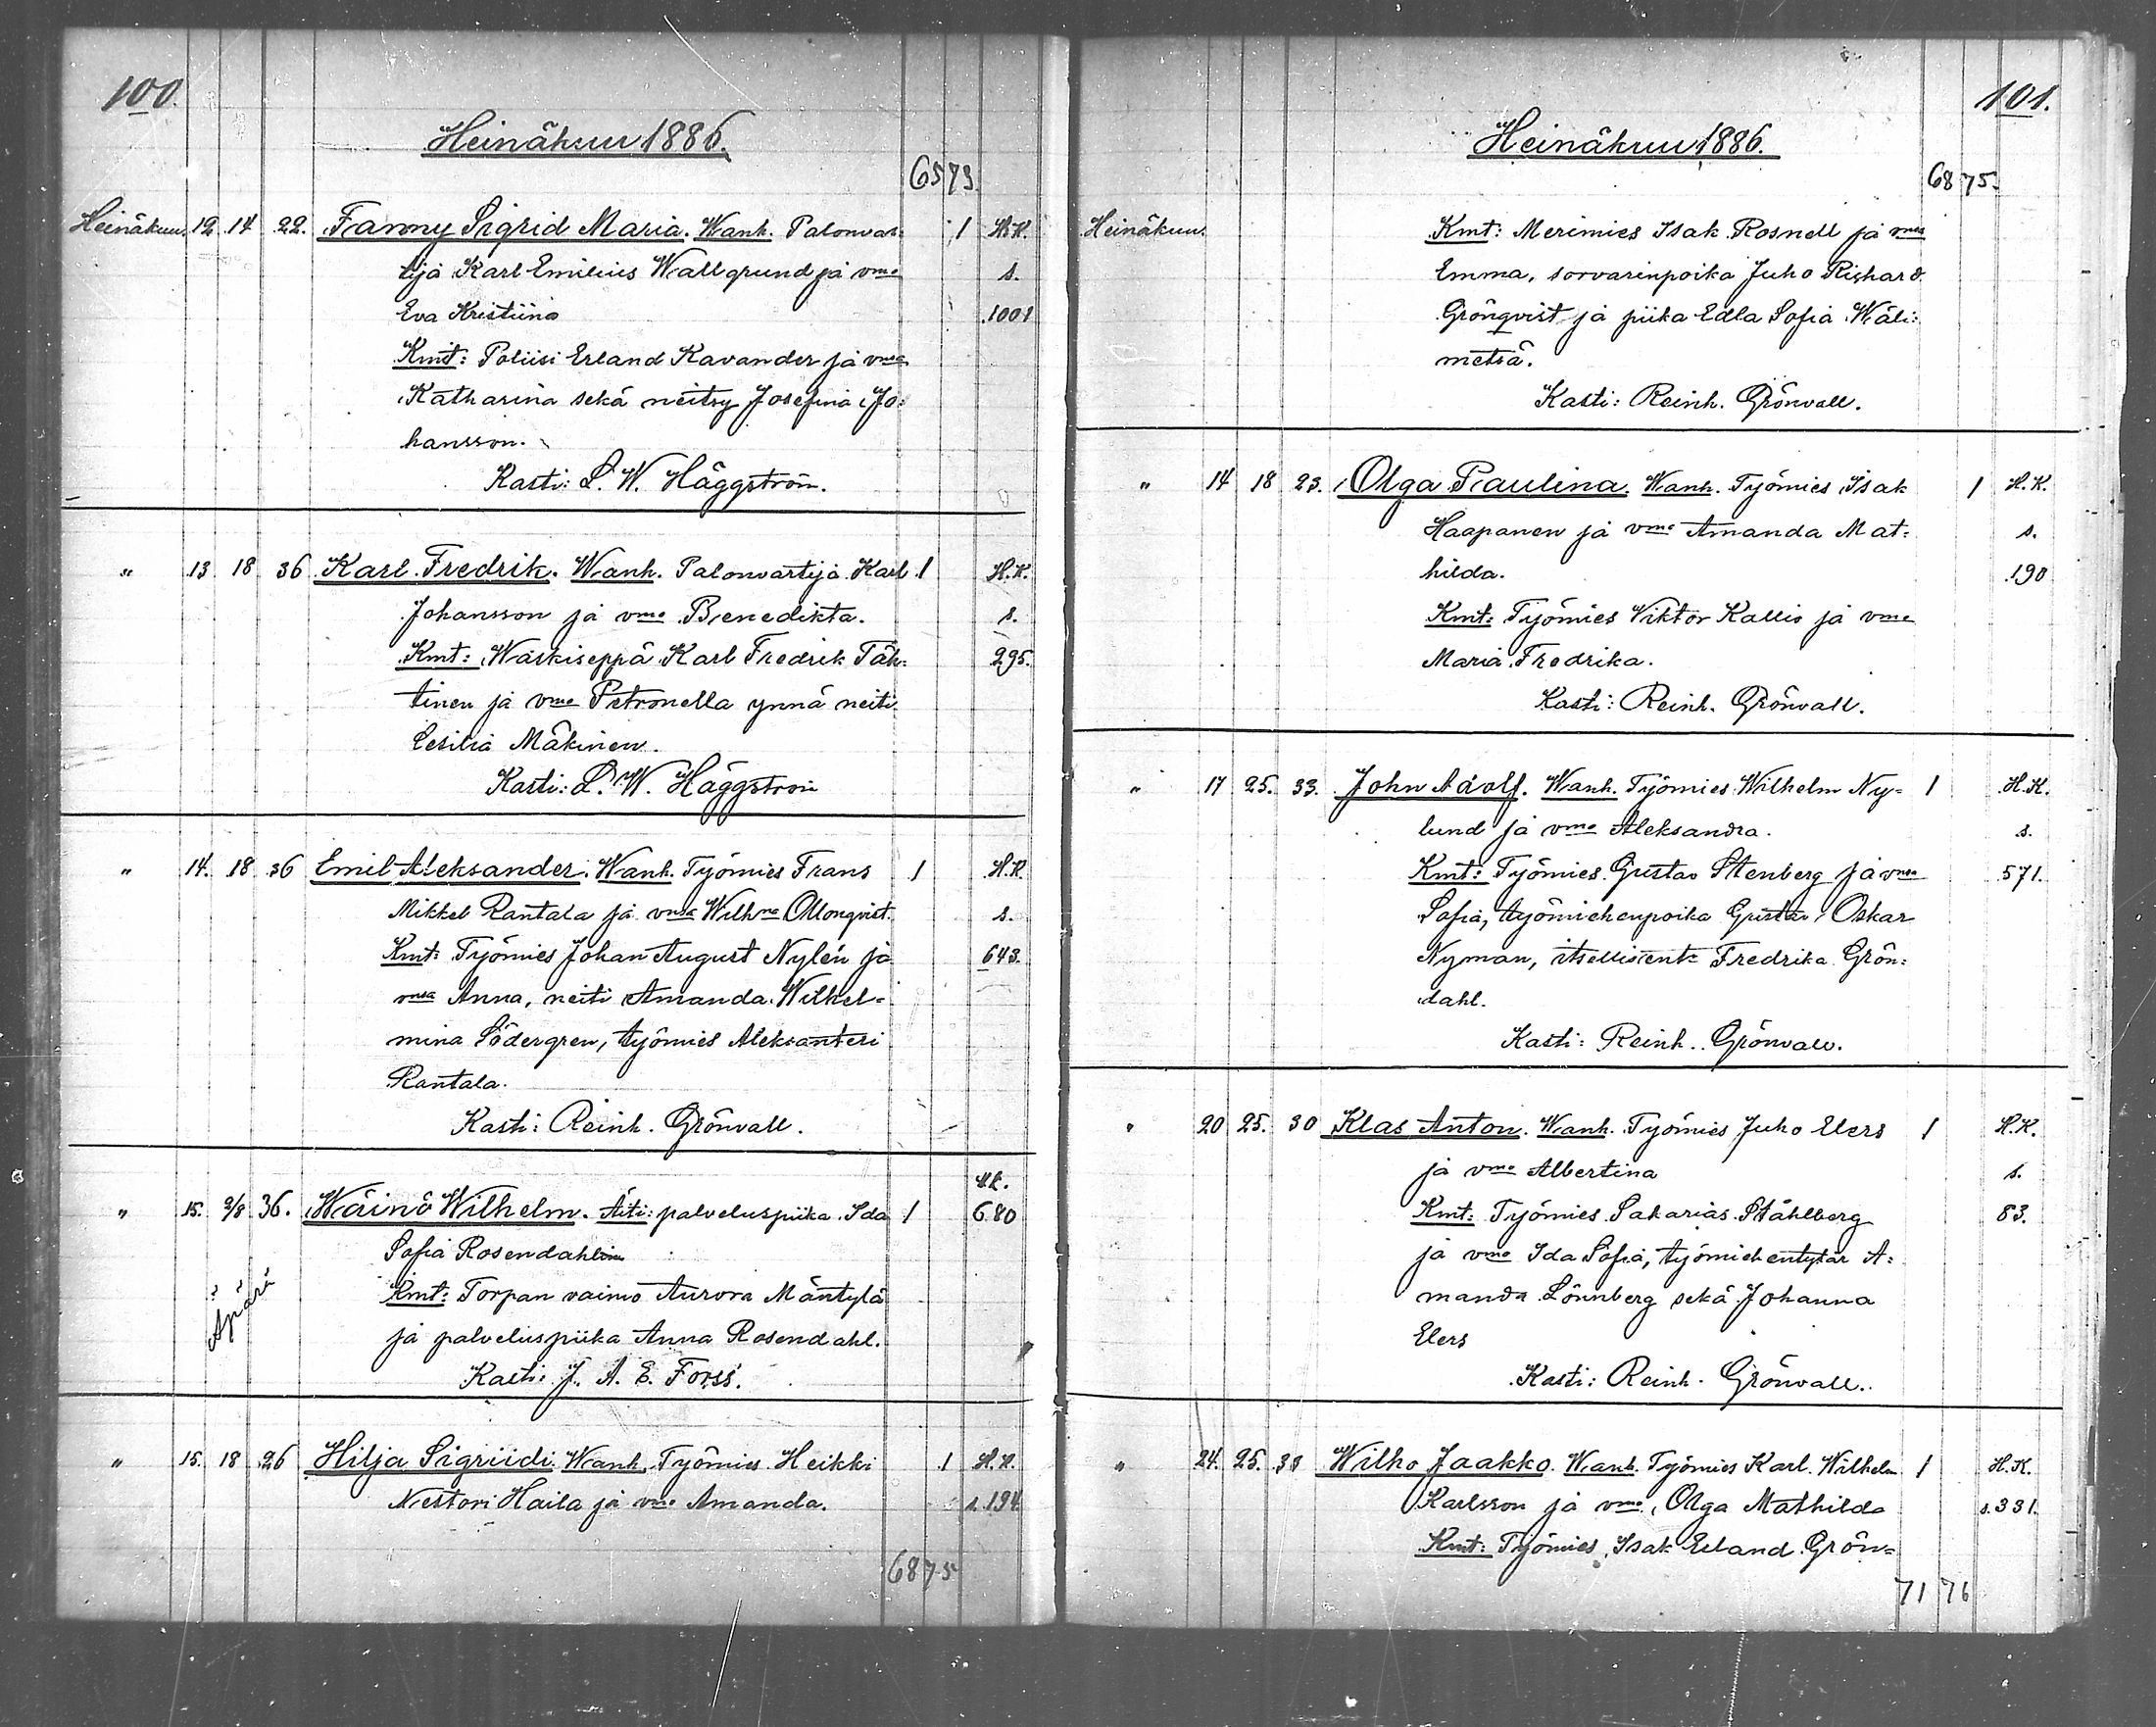 100.
Heinäkuu 1886.
65 73.
Heinäkuu. 12 14 22. Fanny Sigrid Maria. Wanh. Palonvar= 1 H.K.
tija Karl Emilius Wallgrund ja vmo s.
Eva Kristiina 1001
Kmt: Poliisi Erland Kavander ja vmsa
Katharina sekä neitsy Josefina Jo=
hansson.
Kasti: L. W. Häggström.
" 13 18 36 Karl Fredrik. Wanh. Palonvartija Karl 1 H.K.
Johansson ja vmo Benedikta. s.
Kmt: Waskiseppä Karl Fredrik Täh= 295.
tinen ja vmo Petronella ynnä neiti
Cesilia Mäkinen.
Kasti: L. W. Häggström
" 14. 18 36 Emil Aleksander. Wanh. Työmies Frans 1 H.K.
Mikkel Rantala ja vmsa Wilhna Ollonqvist. s.
Kmt: Työmies Johan August Nylén ja 643.
vmsa Anna, neiti Amanda Wilhel=
mina Södergren, työmies Aleksanteri
Rantala.
Kasti: Reinh. Grönvall.
Uk.
" 15. 2/8 36. Wäinö Wilhelm. Äiti: palveluspiika Ida 1 680
Sofia Rosendahl
Äpärä
Kmt: Torpan vaimo Aurora Mäntylä
ja palveluspiika Anna Rosendahl.
Kasti: J. A. E. Forss.
" 15. 18 26 Hilja Sigriidi. Wanh. Työmies Heikki 1 H.K.
Nestori Haila ja vmo Amanda. s. 194
68 75
101.
Heinäkuu 1886.
68 75.
Heinäkuu. Kmt: Merimies Isak Rosnell ja vmsa
Emma, sorvarinpoika Juho Rishard
Grönqvist ja piika Edla Sofia Wäli=
metsä.
Kasti: Reinh. Grönvall.
" 14 18 23. Olga Paulina. Wanh. Työmies Isak 1 H.K.
Haapanen ja vmo Amanda Mat= s.
hilda. 190
Kmt: Työmies Viktor Kallio ja vmo
Maria Fredrika.
Kasti: Reinh. Grönvall.
" 17 25. 33. John Adolf. Wanh. Työmies Wilhelm Ny= 1 H.K.
lund ja vmo Aleksandra. s.
Kmt: Työmies Gustav Stenberg ja vmsa 571.
Sofia, työmiehenpoika Gustav Oskar
Nyman, itsellisent: Fredrika Grön=
dahl.
Kasti: Reinh. Grönvall.
" 20 25. 30 Klas Anton. Wanh. Työmies Juho Elers 1 H.K.
ja vmo Albertina s.
Kmt: Työmies Sakarias Ståhlberg 83.
ja vmo Ida Sofia, työmiehentytär A=
manda Lönnberg sekä Johanna
Elers
Kasti: Reinh. Grönvall.
" 24. 25. 38 Wilho Jaakko. Wanh. Työmies Karl Wilhelm 1 H.K.
Karlsson ja vmo Olga Mathilda s. 331.
Kmt: Työmies Isak Erland Grön=
71 76